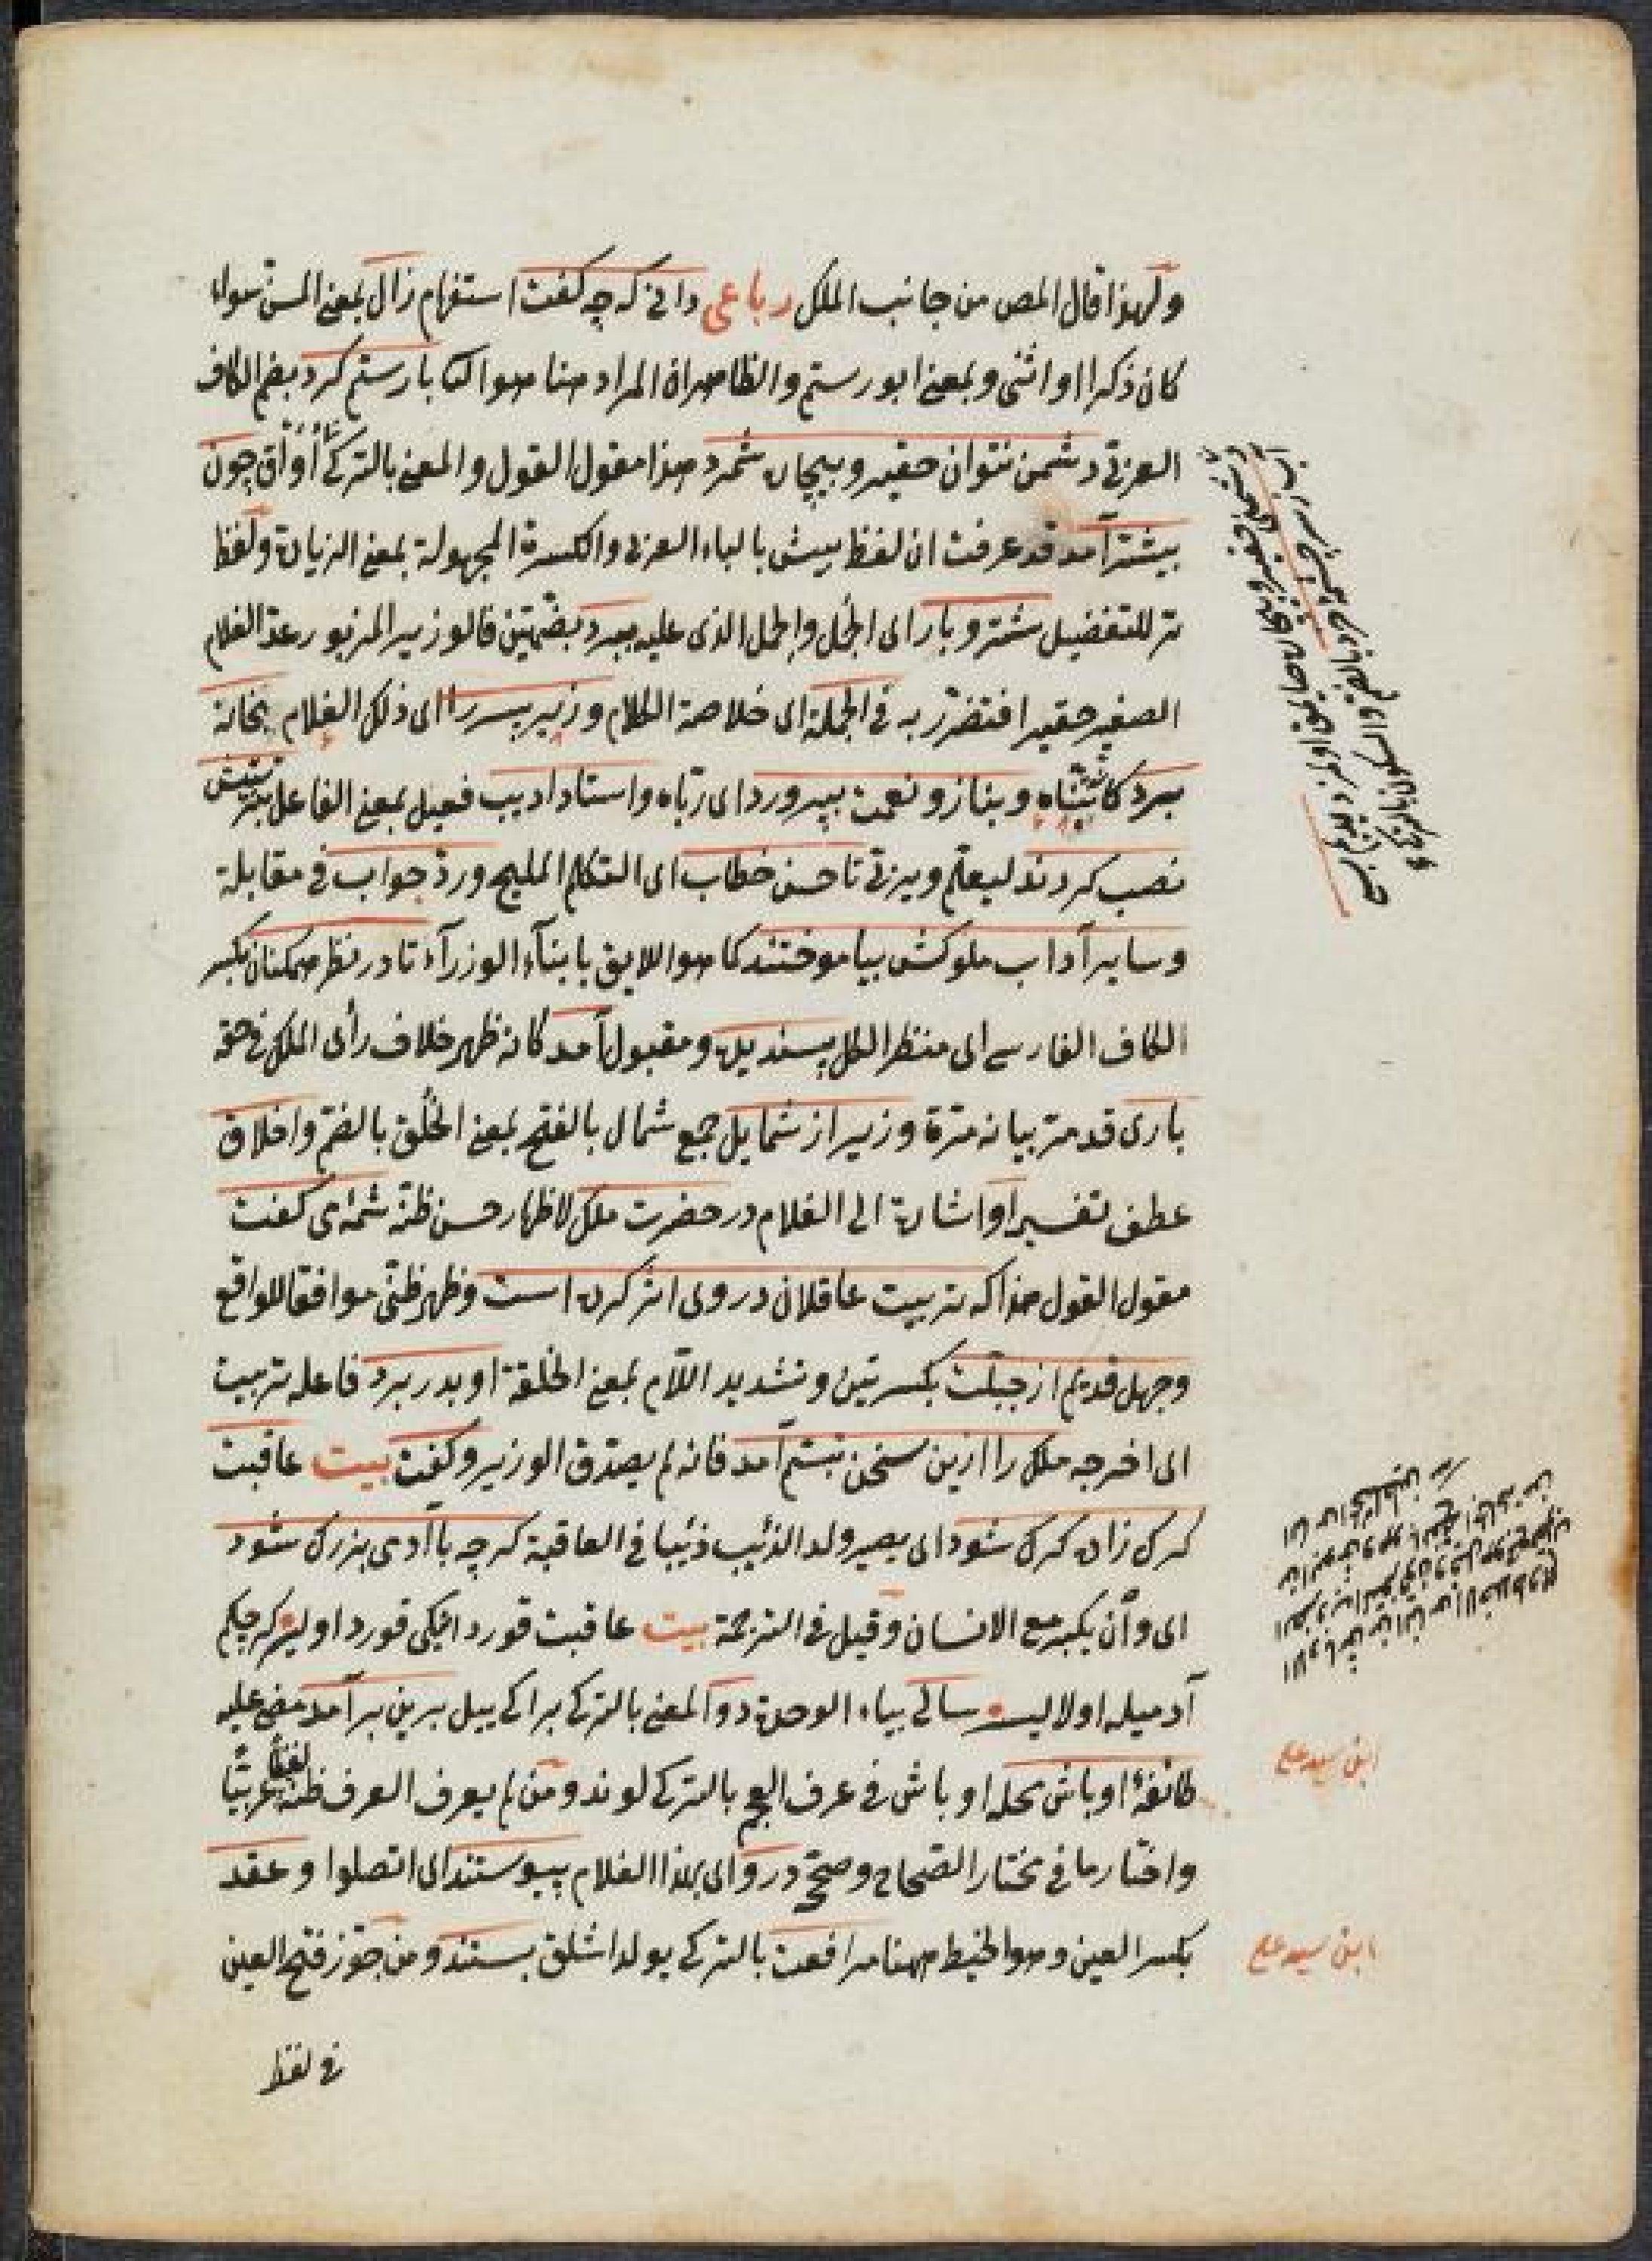 ولهذا قال المص من جانب الملك رباعى دانى كه چه كفت استفهام زال بمعنى المسن سواء
كان ذكرا او انثى وبمعنى ابو رستم والظاهر ان المراد هنا هو الثا با رستم كرد بضم الكاف
العربى دشمن نتوان حقير وبيچاره شمرد هذا مقول القول والمعنى بالتركى
بيشتر آمد قد عرفت ان لفظ بيش بالباء العربى والكسرة المجهولة بمعنى الزيادة ولفظ
تر للتفضيل شتر وبار اى الجمل والحمل الذى عليه ببرد بضمتين فالوزير المزبور عد الغلام
الصغير حقيرا فتضرر به فى الجملة اى خلاصة الكلام وزير پسر را اى ذلك الغلام بخانه
ببرد كا بيناه وبناز ونعمت بپرورد اى رباه واستاد اديب فعيل بمعنى الفاعل بتربيتش
نصب كردند ليعلم ويربى تا حسن خطاب اى التكلم المليح ورد جواب فى مقابلة
وساير آداب ملوكش بياموختند كا هو اللايق بابناء الوزرآء تا در نظر همكنان بكسر
الكاف الفارسى اى منظر الكل پسنديده ومقبول آمد كانه ظهر خلاف رأى الملك فى حقه
بارى قد مر بيانه مرة وزير از شمايل جمع شمال بالفتح بمعنى الخلق بالضم واخلاق
عطف تفسير او اشارة الى الغلام در حضرت ملك لاظهار حسن ظنه شمه‌ى كفت
مقول القول هذا كه تربيت عاقلان در وى اثر كرده است وظهر ظنى موافقا للواقع
وجهل قديم از جبلت بكسرتين وتشديد اللام بمعنى الخلقة او بدر برد فاعله تربيت
اى اخرجه ملك را ازين سخن تبسم آمد فانه لم يصدق الوزير وكفت بيت عاقبت
كرك زاده كرك شود اى يصير ولد الذئب ذئبا فى العاقبة كرچه با آدمى بزرك شود
اى وأن يكبر مع الانسان وقيل فى الترجمة بيت عاقبت قورد انيكى قورد اولير كرچكم
آدميله اولا ليسه سالى بياء الوحدة دو المعنى بالتركى بر ايكى ييل برين بر آمد مضى عليه
طائفۀ اوباش محله اوباش فى عرف العجم بالتركى لوند ومن لم يعرف العرف ظنه لفظا عربيا
واختار ما فى مختار الصحاح وصحح در و اى بهذا الغلام پيوستند اى اتصلوا وعقد
بكسر العين وهو الخيط ههنا مرافقت بالتركى يولداشلق بستند ومن جوز فتح العين
فى لفظ
ابن سيد على
ابن سيد على